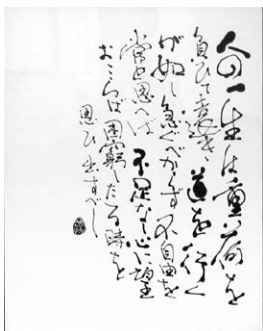 人の一生は重荷を
負ひて遠き道を行く
が如し急ぐべからず不自由を
常と思へば不足なし心に望
おこらば困窮したる時を
思ひ出すべし